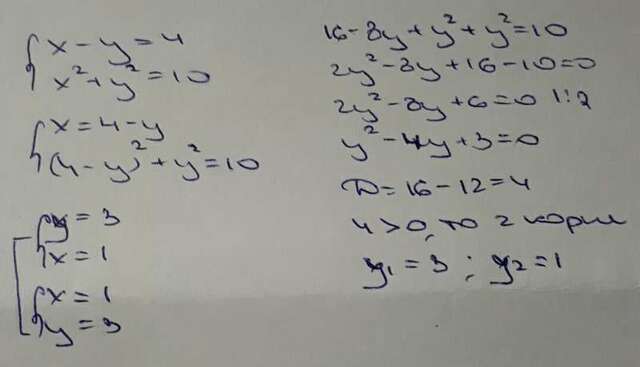 x - y = 4
x² + y² = 10
x = 4 - y
(4 - y)² + y² = 10
y = 3
x = 1
x = 1
y = 3
16 - 8y + y² + y² = 10
2y² - 8y + 16 - 10 = 0
2y² - 8y + 6 = 0 |:2
y² - 4y + 3 = 0
D = 16 - 12 = 4
4 > 0, то 2 корня
y₁ = 3 ; y₂ = 1